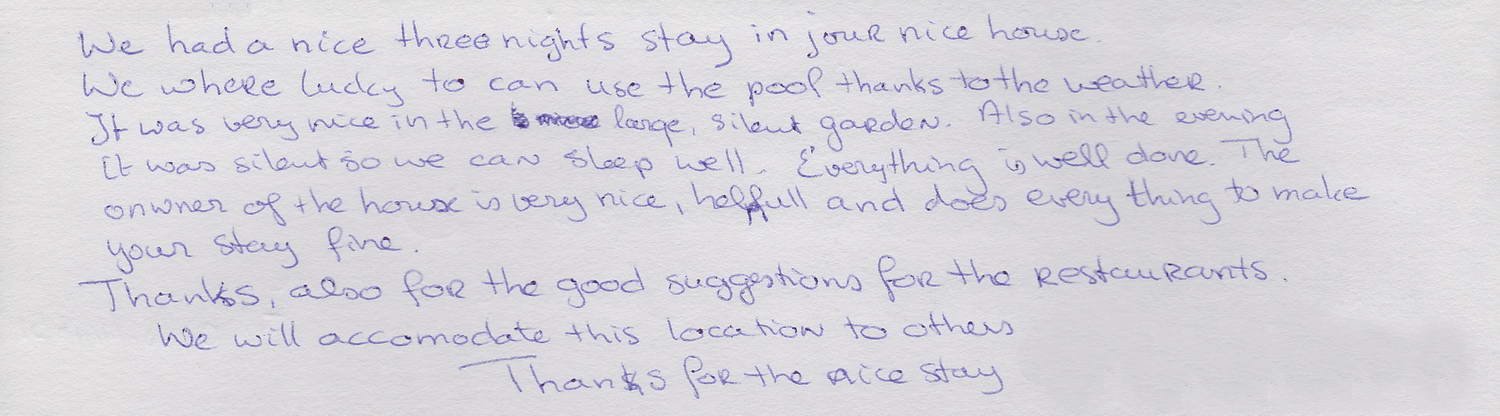 We had a nice three nights stay in jour nice house.
We where lucky to can use the pool thanks to the weather.
It was very nice in the large, silent garden. Also in the evening
it was silent so we can sleep well. Everything is well done. The
onwner of the house is very nice, helpfull and does every thing to make
your stay fine.
Thanks, also for the good suggestions for the restaurants.
We will accomodate this location to others
Thanks for the nice stay